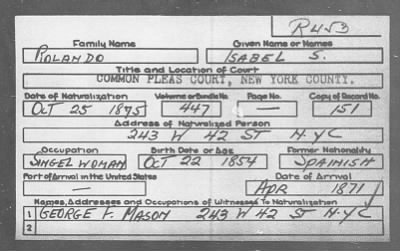 R453
Family Name Given Name or Names
ROLANDO ISABEL S.
Title and Location of Court
COMMON PLEAS COURT, NEW YORK COUNTY.
Date of Naturalization Volume or Bundle No. Page No. Copy of Record No.
OCT 25 1875 447 — 151
Address of Naturalized Person
243 W 42 ST N.Y.C
Occupation Birth Date or Age Former Nationality
SINGEL WOMAN OCT 22 1854 SPAINISH
Port of Arrival in the United States Date of Arrival
— APR 1871
Names, Addresses and Occupations of Witnesses To Naturalization
1 GEORGE F. MASON 243 W 42 ST N.Y.C
2